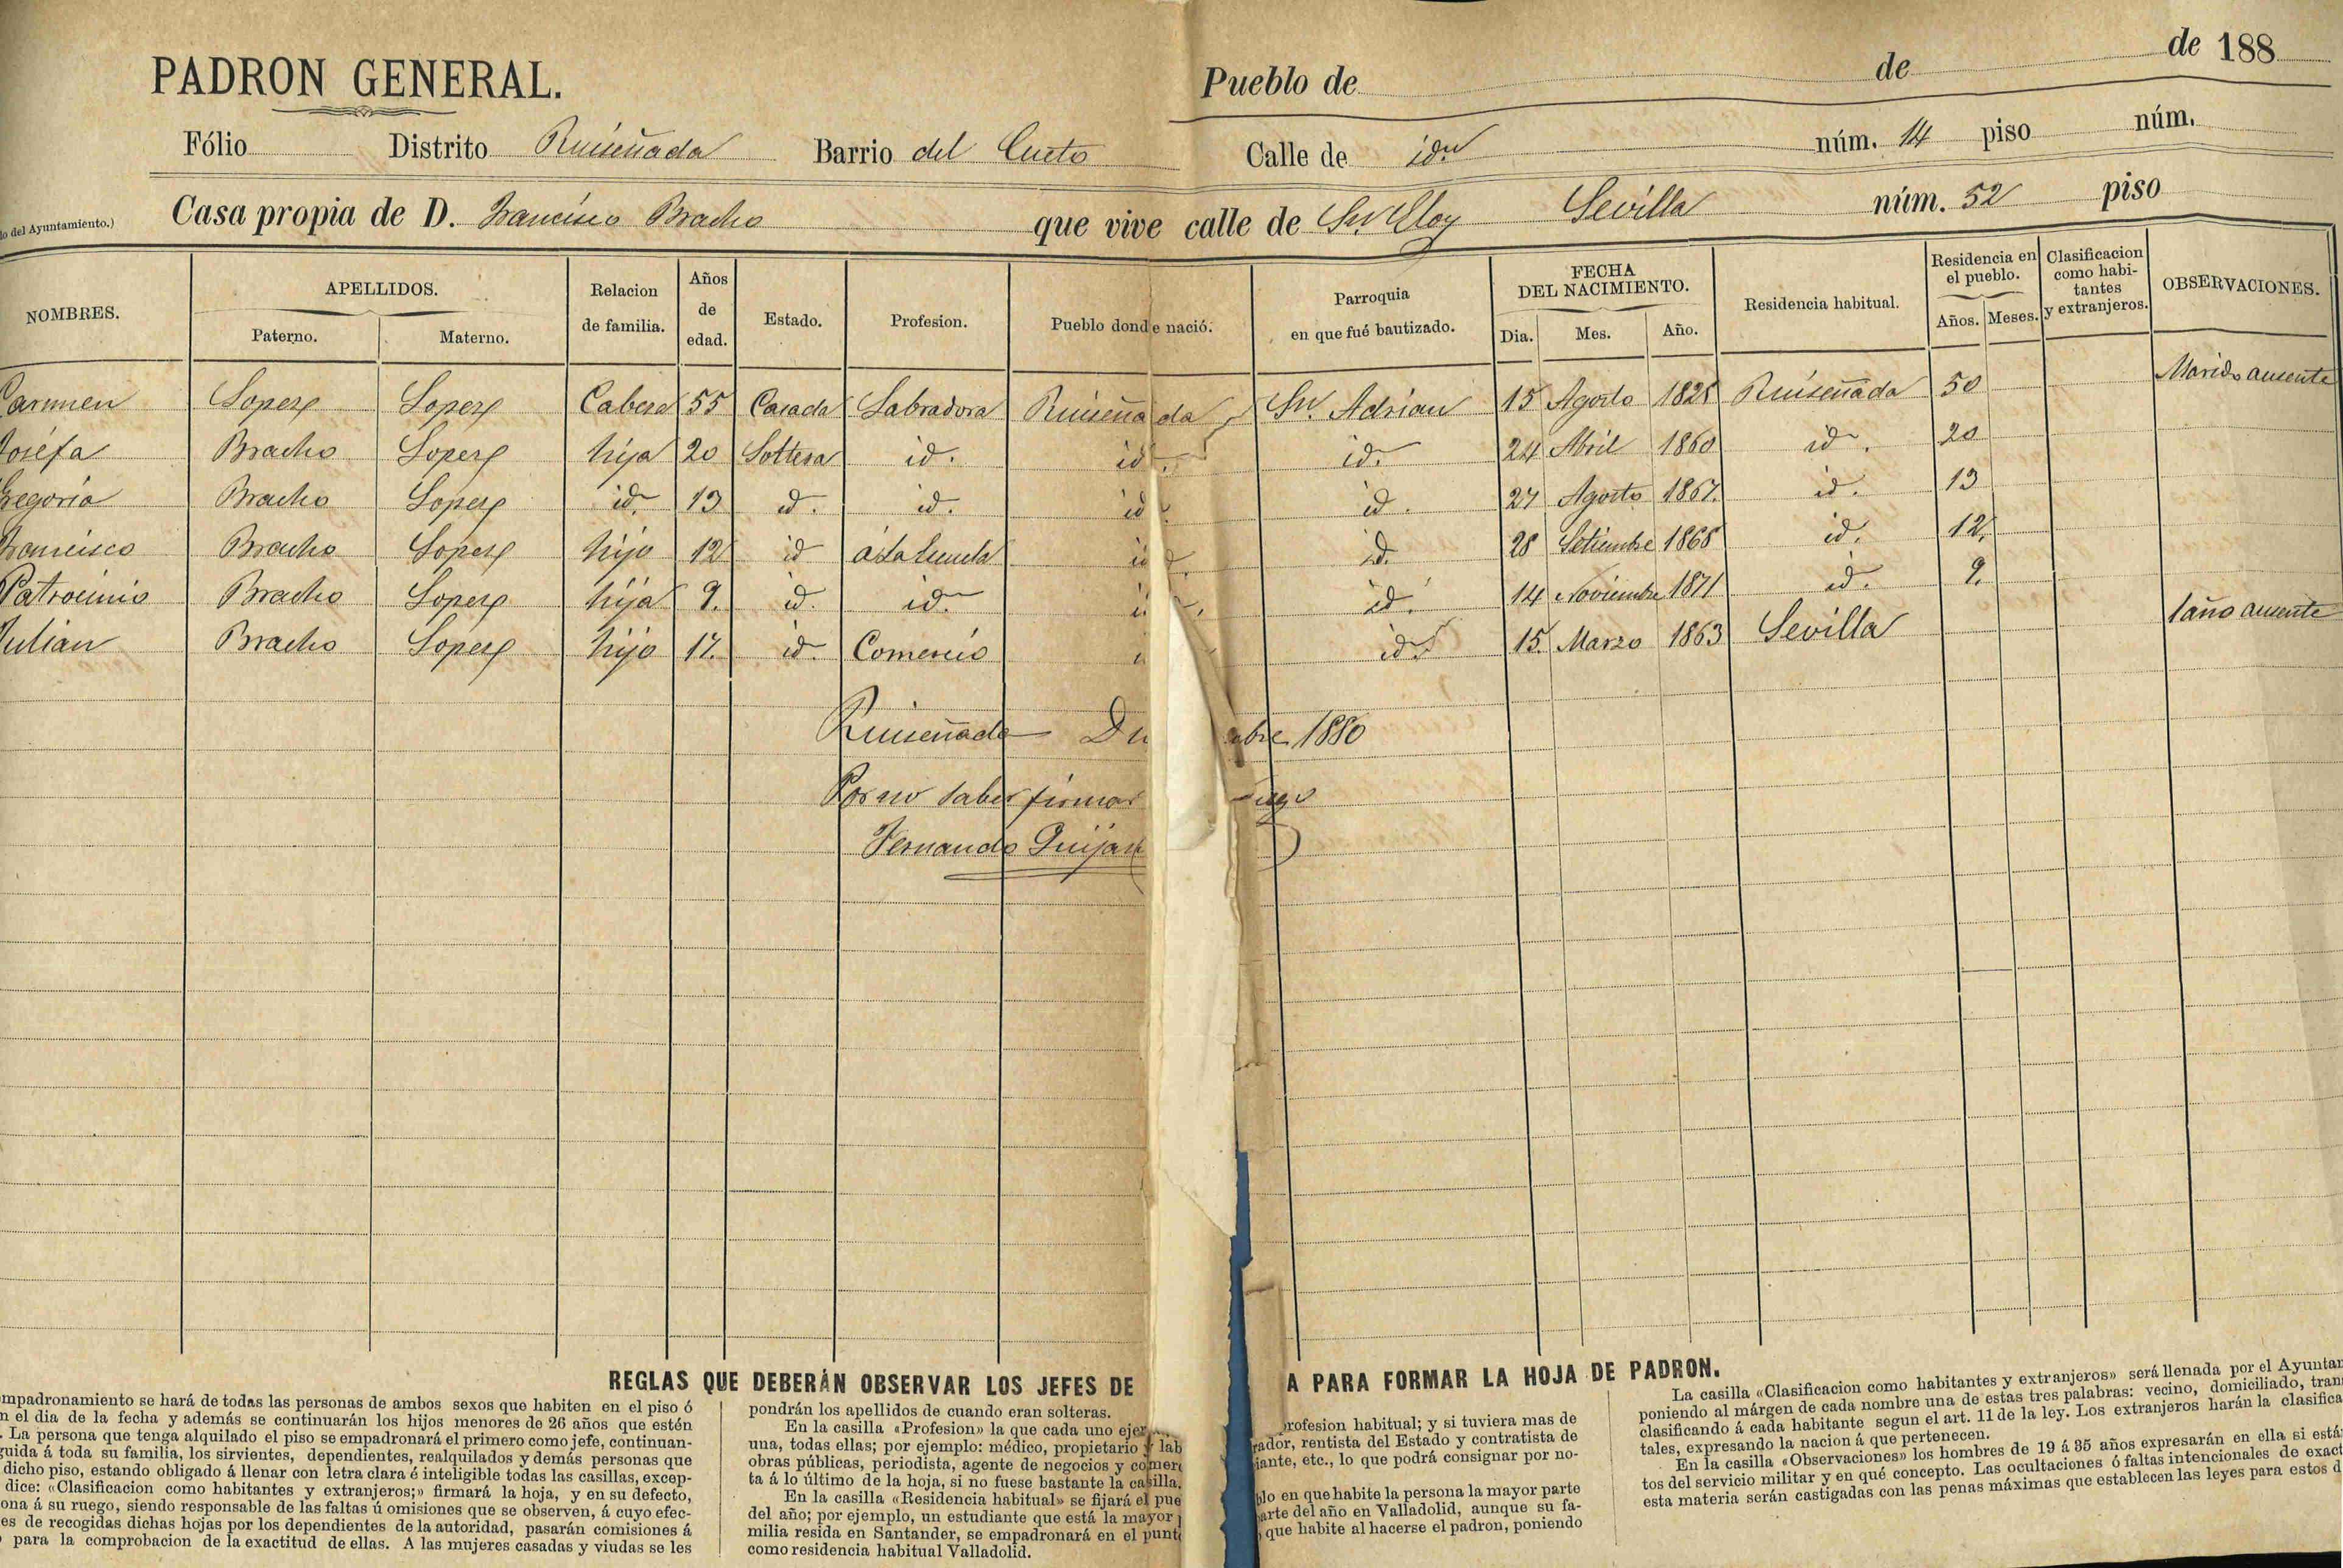 PADRON GENERAL.
Pueblo de de de 188
Fólio Distrito Ruiseñada Barrio del Cueto Calle de idn núm. 14 piso núm.
lo del Ayuntamiento.) Casa propia de D. Francisco Bracho que vive calle de Sn. Eloy Sevilla núm. 52 piso
NOMBRES. APELLIDOS. Relacion de familia. Años de edad. Estado. Profesion. Pueblo donde nació. Parroquia en que fué bautizado. FECHA DEL NACIMIENTO. Residencia habitual. Residencia en el pueblo. Clasificacion como habitantes y extranjeros. OBSERVACIONES.
Paterno. Materno. Dia. Mes. Año. Años. Meses.
Carmen Lopez Lopez Cabeza 55 Casada Labradora Ruiseñada Sn. Adrian 15 Agosto 1825 Ruiseñada 50 Marido ausente
Josefa Bracho Lopez hija 20 Soltera id. id. id. 24 Abril 1860 id. 20
Gregoria Bracho Lopez id. 13 id. id. id. id. 27 Agosto 1867. id. 13
Francisco Bracho Lopez hijo 12 id á la Escuela id. id. 28 Setiembre 1868 id. 12.
Patrocinio Bracho Lopez hija 9. id. id. id. 14 Noviembre 1871 id. 9.
Julian Bracho Lopez hijo 17. id. Comercio id. 15. Marzo 1863 Sevilla 1 año ausente
Ruiseñada Di bre 1880
Por no saber firmar uego
Fernando Quijan
REGLAS QUE DEBERÁN OBSERVAR LOS JEFES DE A PARA FORMAR LA HOJA DE PADRON.
mpadronamiento se hará de todas las personas de ambos sexos que habiten en el piso ó
n el dia de la fecha y además se continuarán los hijos menores de 26 años que estén
. La persona que tenga alquilado el piso se empadronará el primero como jefe, continuan-
guida á toda su familia, los sirvientes, dependientes, realquilados y demás personas que
dicho piso, estando obligado á llenar con letra clara é inteligible todas las casillas, excep-
dice: «Clasificacion como habitantes y extranjeros;» firmará la hoja, y en su defecto,
ona á su ruego, siendo responsable de las faltas ú omisiones que se observen, á cuyo efec-
es de recogidas dichas hojas por los dependientes de la autoridad, pasarán comisiones á
para la comprobacion de la exactitud de ellas. A las mujeres casadas y viudas se les
pondrán los apellidos de cuando eran solteras.
En la casilla «Profesion» la que cada uno ejer profesion habitual; y si tuviera mas de
una, todas ellas; por ejemplo: médico, propietario y lab rador, rentista del Estado y contratista de
obras públicas, periodista, agente de negocios y comer iante, etc., lo que podrá consignar por no-
ta á lo último de la hoja, si no fuese bastante la casilla.
En la casilla «Residencia habitual» se fijará el pue blo en que habite la persona la mayor parte
del año; por ejemplo, un estudiante que está la mayor parte del año en Valladolid, aunque su fa-
milia resida en Santander, se empadronará en el punt que habite al hacerse el padron, poniendo
como residencia habitual Valladolid.
La casilla «Clasificacion como habitantes y extranjeros» será llenada por el Ayuntam
poniendo al márgen de cada nombre una de estas tres palabras: vecino, domiciliado, tran
clasificando á cada habitante segun el art. 11 de la ley. Los extranjeros harán la clasifica
tales, expresando la nacion á que pertenecen.
En la casilla «Observaciones» los hombres de 19 á 35 años expresarán en ella si está
tos del servicio militar y en qué concepto. Las ocultaciones ó faltas intencionales de exact
esta materia serán castigadas con las penas máximas que establecen las leyes para estos d